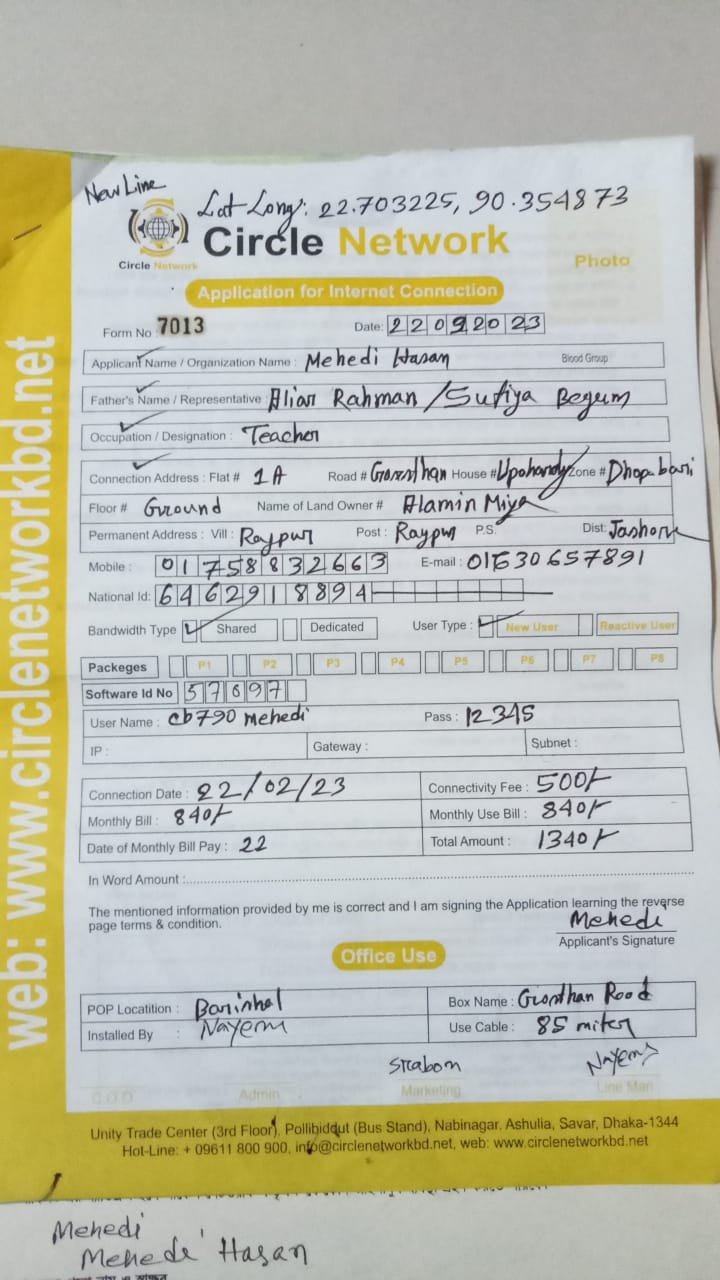 New Line
Lat Long: 22.703225, 90.354873
Circle Network
Circle Network
Photo
Application for Internet Connection
Form No 7013
Date: 22092023
Applicant Name / Organization Name : Mehedi Hasan Blood Group
Father's Name / Representative : Rahman / Sufiya Begum
Occupation / Designation : Teacher
Connection Address : Flat # 1A Road # House # Zone # Dhopabari
Floor # Ground Name of Land Owner # Alamin Miya
Permanent Address : Vill : Raypur Post : Raypur P.S. Dist: Jashore
Mobile : 01758832663 E-mail : 01630657891
National Id: 6462918894
Bandwidth Type Shared Dedicated User Type : New User Reactive User
Packeges P1 P2 P3 P4 P5 P6 P7 P8
Software Id No 57697
User Name : cb790 mehedi Pass : 12345
IP : Gateway : Subnet :
Connection Date : 22/02/23 Connectivity Fee : 500/-
Monthly Bill : 840/- Monthly Use Bill : 840/-
Date of Monthly Bill Pay : 22 Total Amount : 1340/-
In Word Amount :
The mentioned information provided by me is correct and I am signing the Application learning the reverse
page terms & condition.
Mehedi
Applicant's Signature
Office Use
POP Locatition : Barishal Box Name : Gronthan Road
Installed By : Nayem Use Cable : 85 miter
Nayem
C.O.O Admin Marketing Line Man
Unity Trade Center (3rd Floor), Pollibiddut (Bus Stand), Nabinagar, Ashulia, Savar, Dhaka-1344
Hot-Line: + 09611 800 900, info@circlenetworkbd.net, web: www.circlenetworkbd.net
web: www.circlenetworkbd.net
Mehedi
Mehedi Hasan